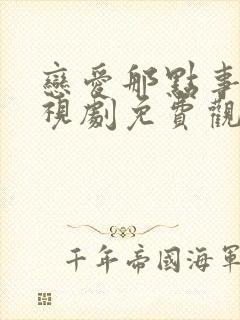 戀愛那點事
視劇免費觀
千年帝國海軍